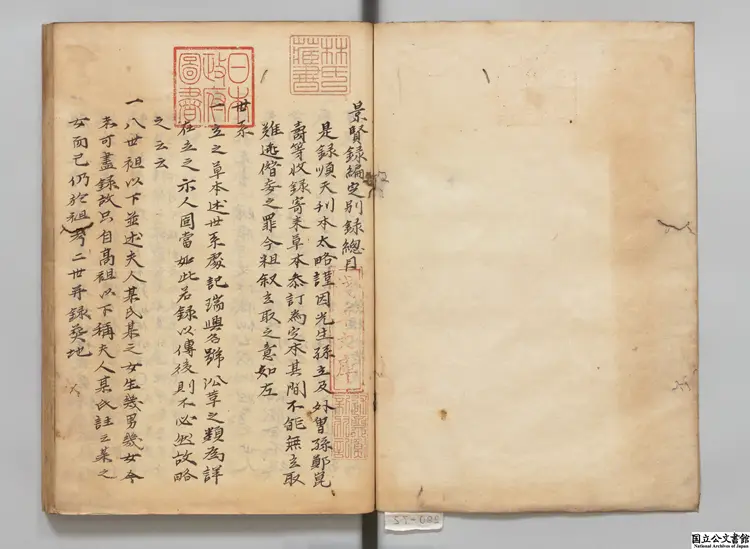 景賢録編定別録總目
是録順天刊本太略謹因先生孫立及外曾孫鄭崑
壽等收録寄來草本叅訂為定本其間不能無去取
難逃僭妄之罪今粗叙去取之意如左
世系
一立之草本述世系處記瑞興乃號 公草之類為詳
在立之示人固當如此若録以傳後則不必然故略
之云云
一八世祖以下並述夫人某氏某之女生幾男幾女今
未可盡録故只自高祖以下稱夫人某氏註云某之
女而已仍於祖考二世再録葬地
林氏藏書
日本政府圖書
国立公文書館
National Archives of Japan